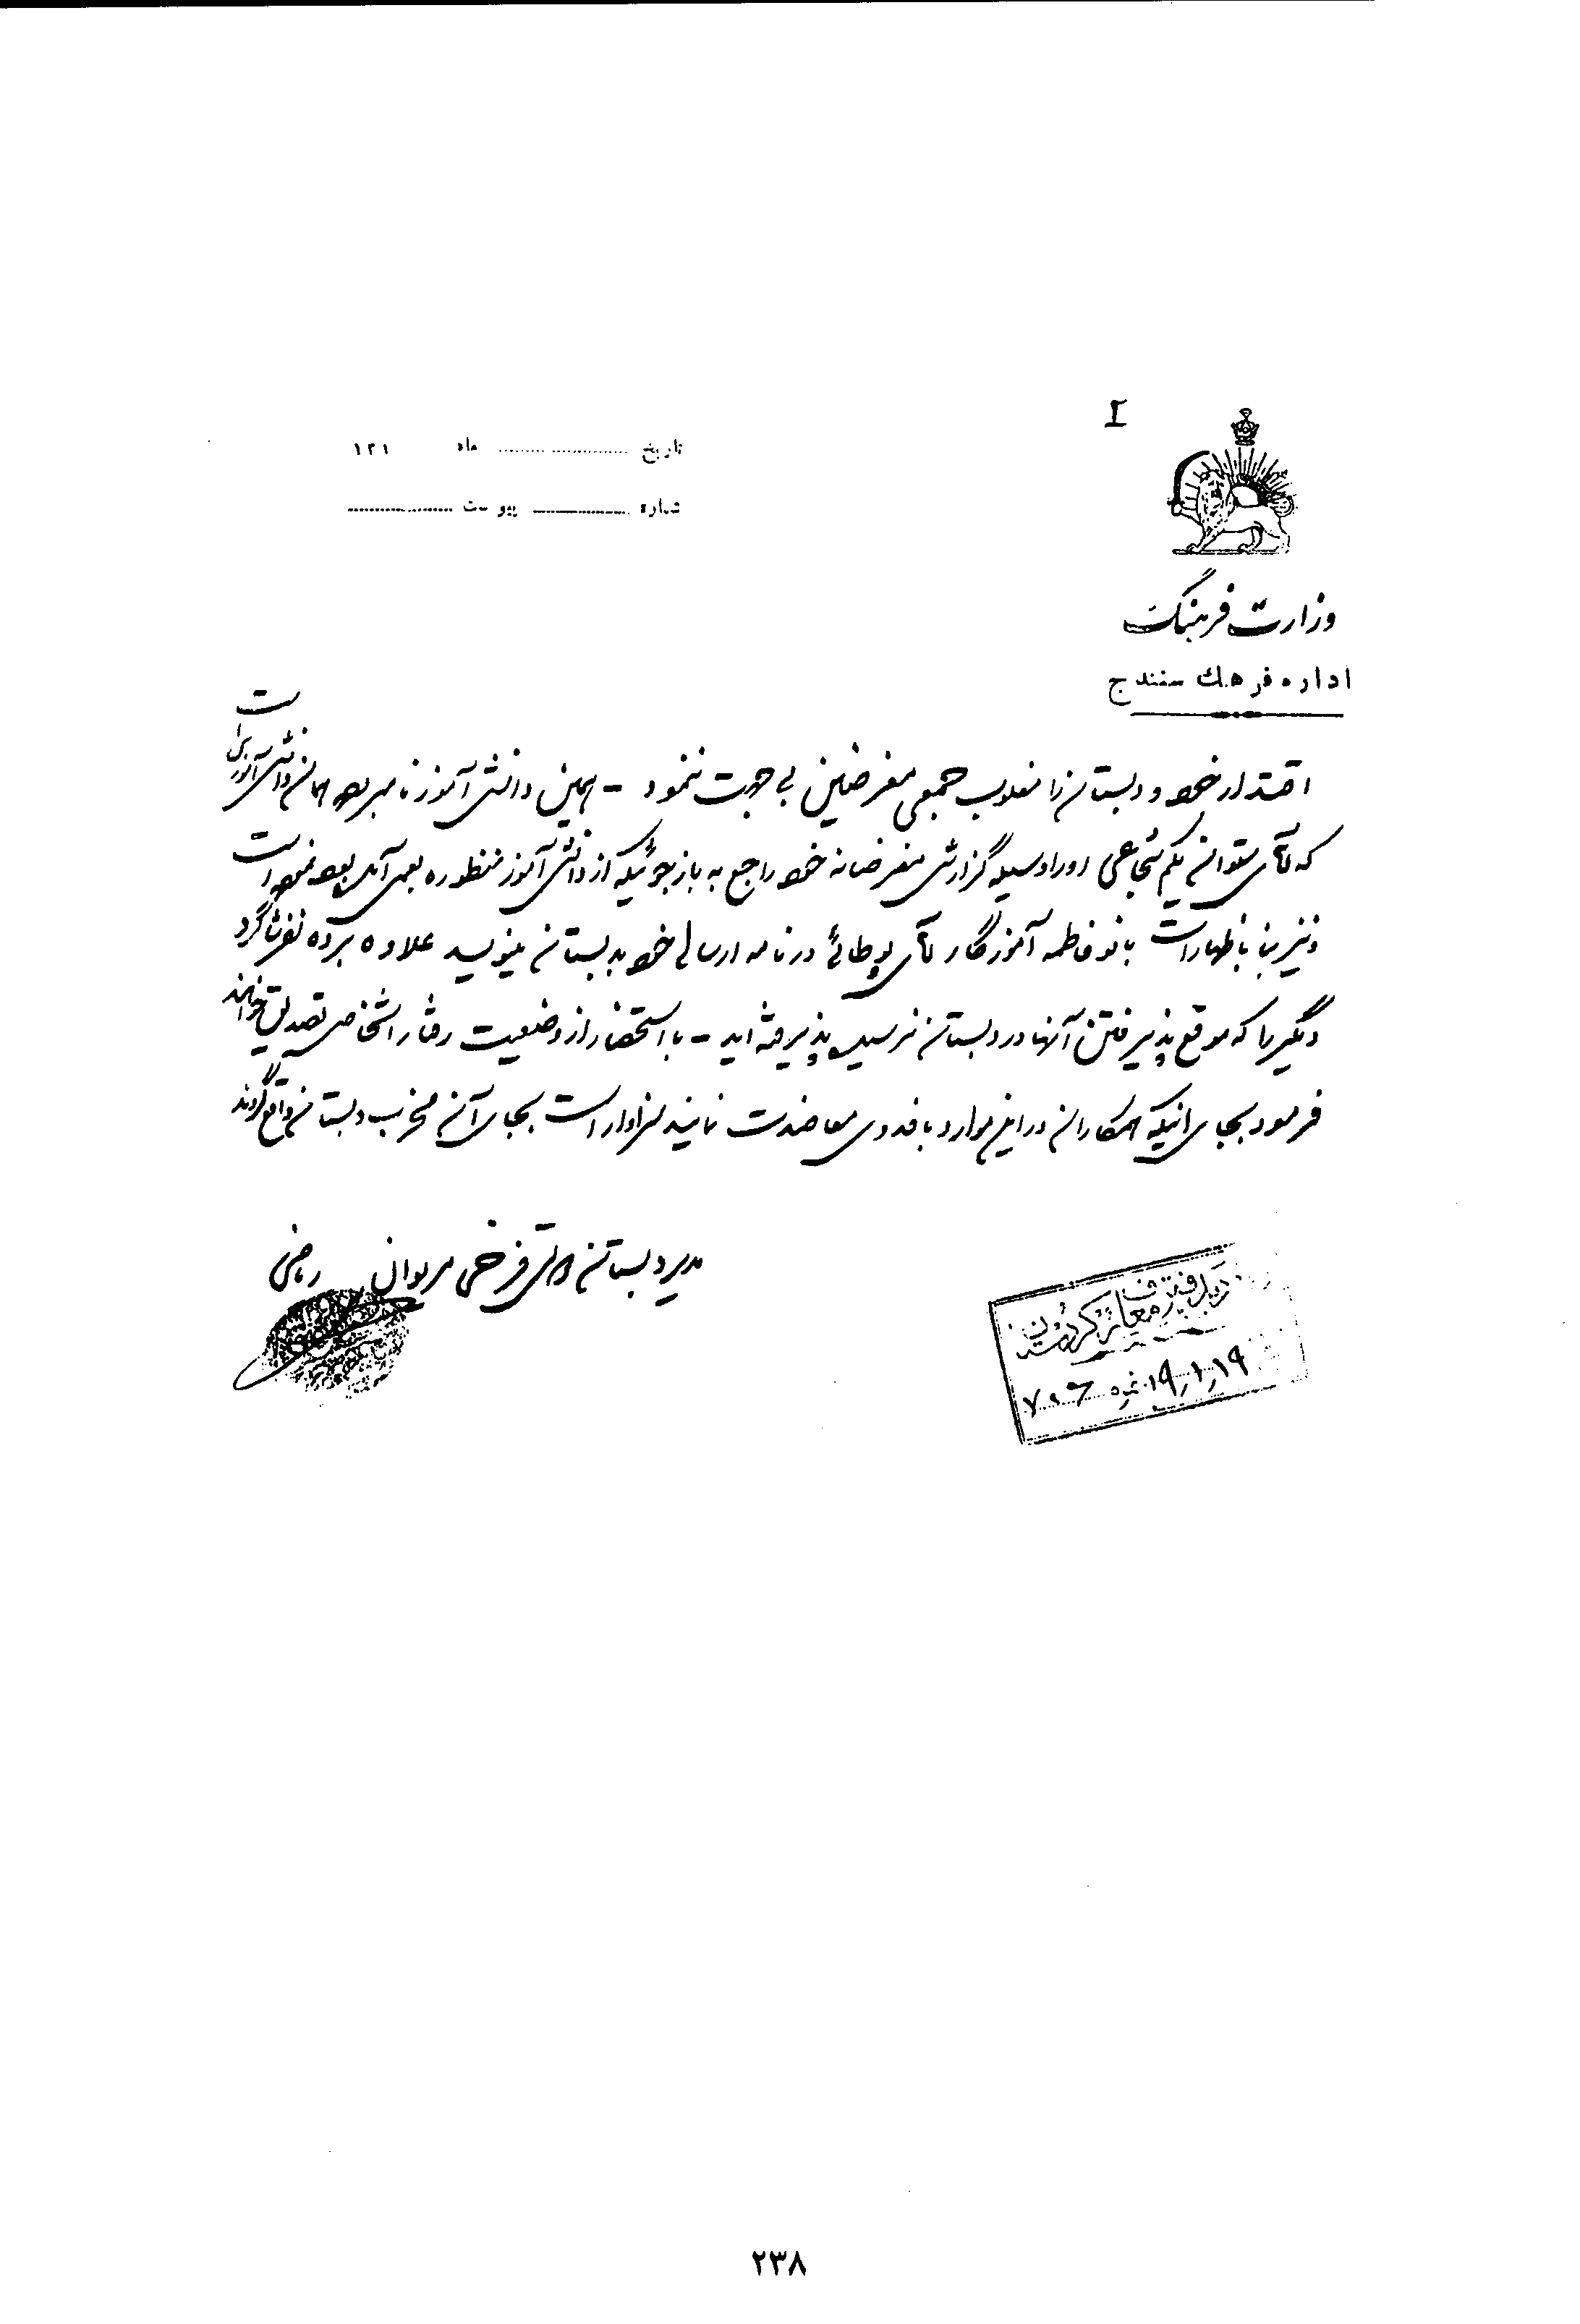 تاریخ ........ ماه ۱۳۱
شماره ........ پیوست ........
وزارت فرهنگ
اداره فرهنگ سنندج
اقتدار خود و دبستان را مغلوب جمعی مغرضین بی جهت ننمود - همین دانش آموز نامبرده همان دانش آموز است
که آقای ستوان یکم شجاعی او را وسیله گزارش مغرضانه خود راجع به بازجوئیکه از دانش آموز منظوره بعمل آمده بود نموده است
و نیز بنا باظهارات بانو فاطمه آموزگار آقای در نامه ارسالی خود بدبستان مینویسد علاوه بر ده نفر شاگرد
دیگر را که موقع پذیرفتن آنها در دبستان نرسیده پذیرفته اید - با استحضار از وضعیت رفتار اشخاص تصدیق خواهند
فرمود بجای اینکه همکاران در این موارد با فدوی معاضدت نمایند سزاوار است بجای آن مخرب دبستان واقع گردند
مدیر دبستان فرخی مریوان ریاضی
معارف کردستان
۱۹٫۱٫۱۹ نمره ۷۰۶
۲۳۸